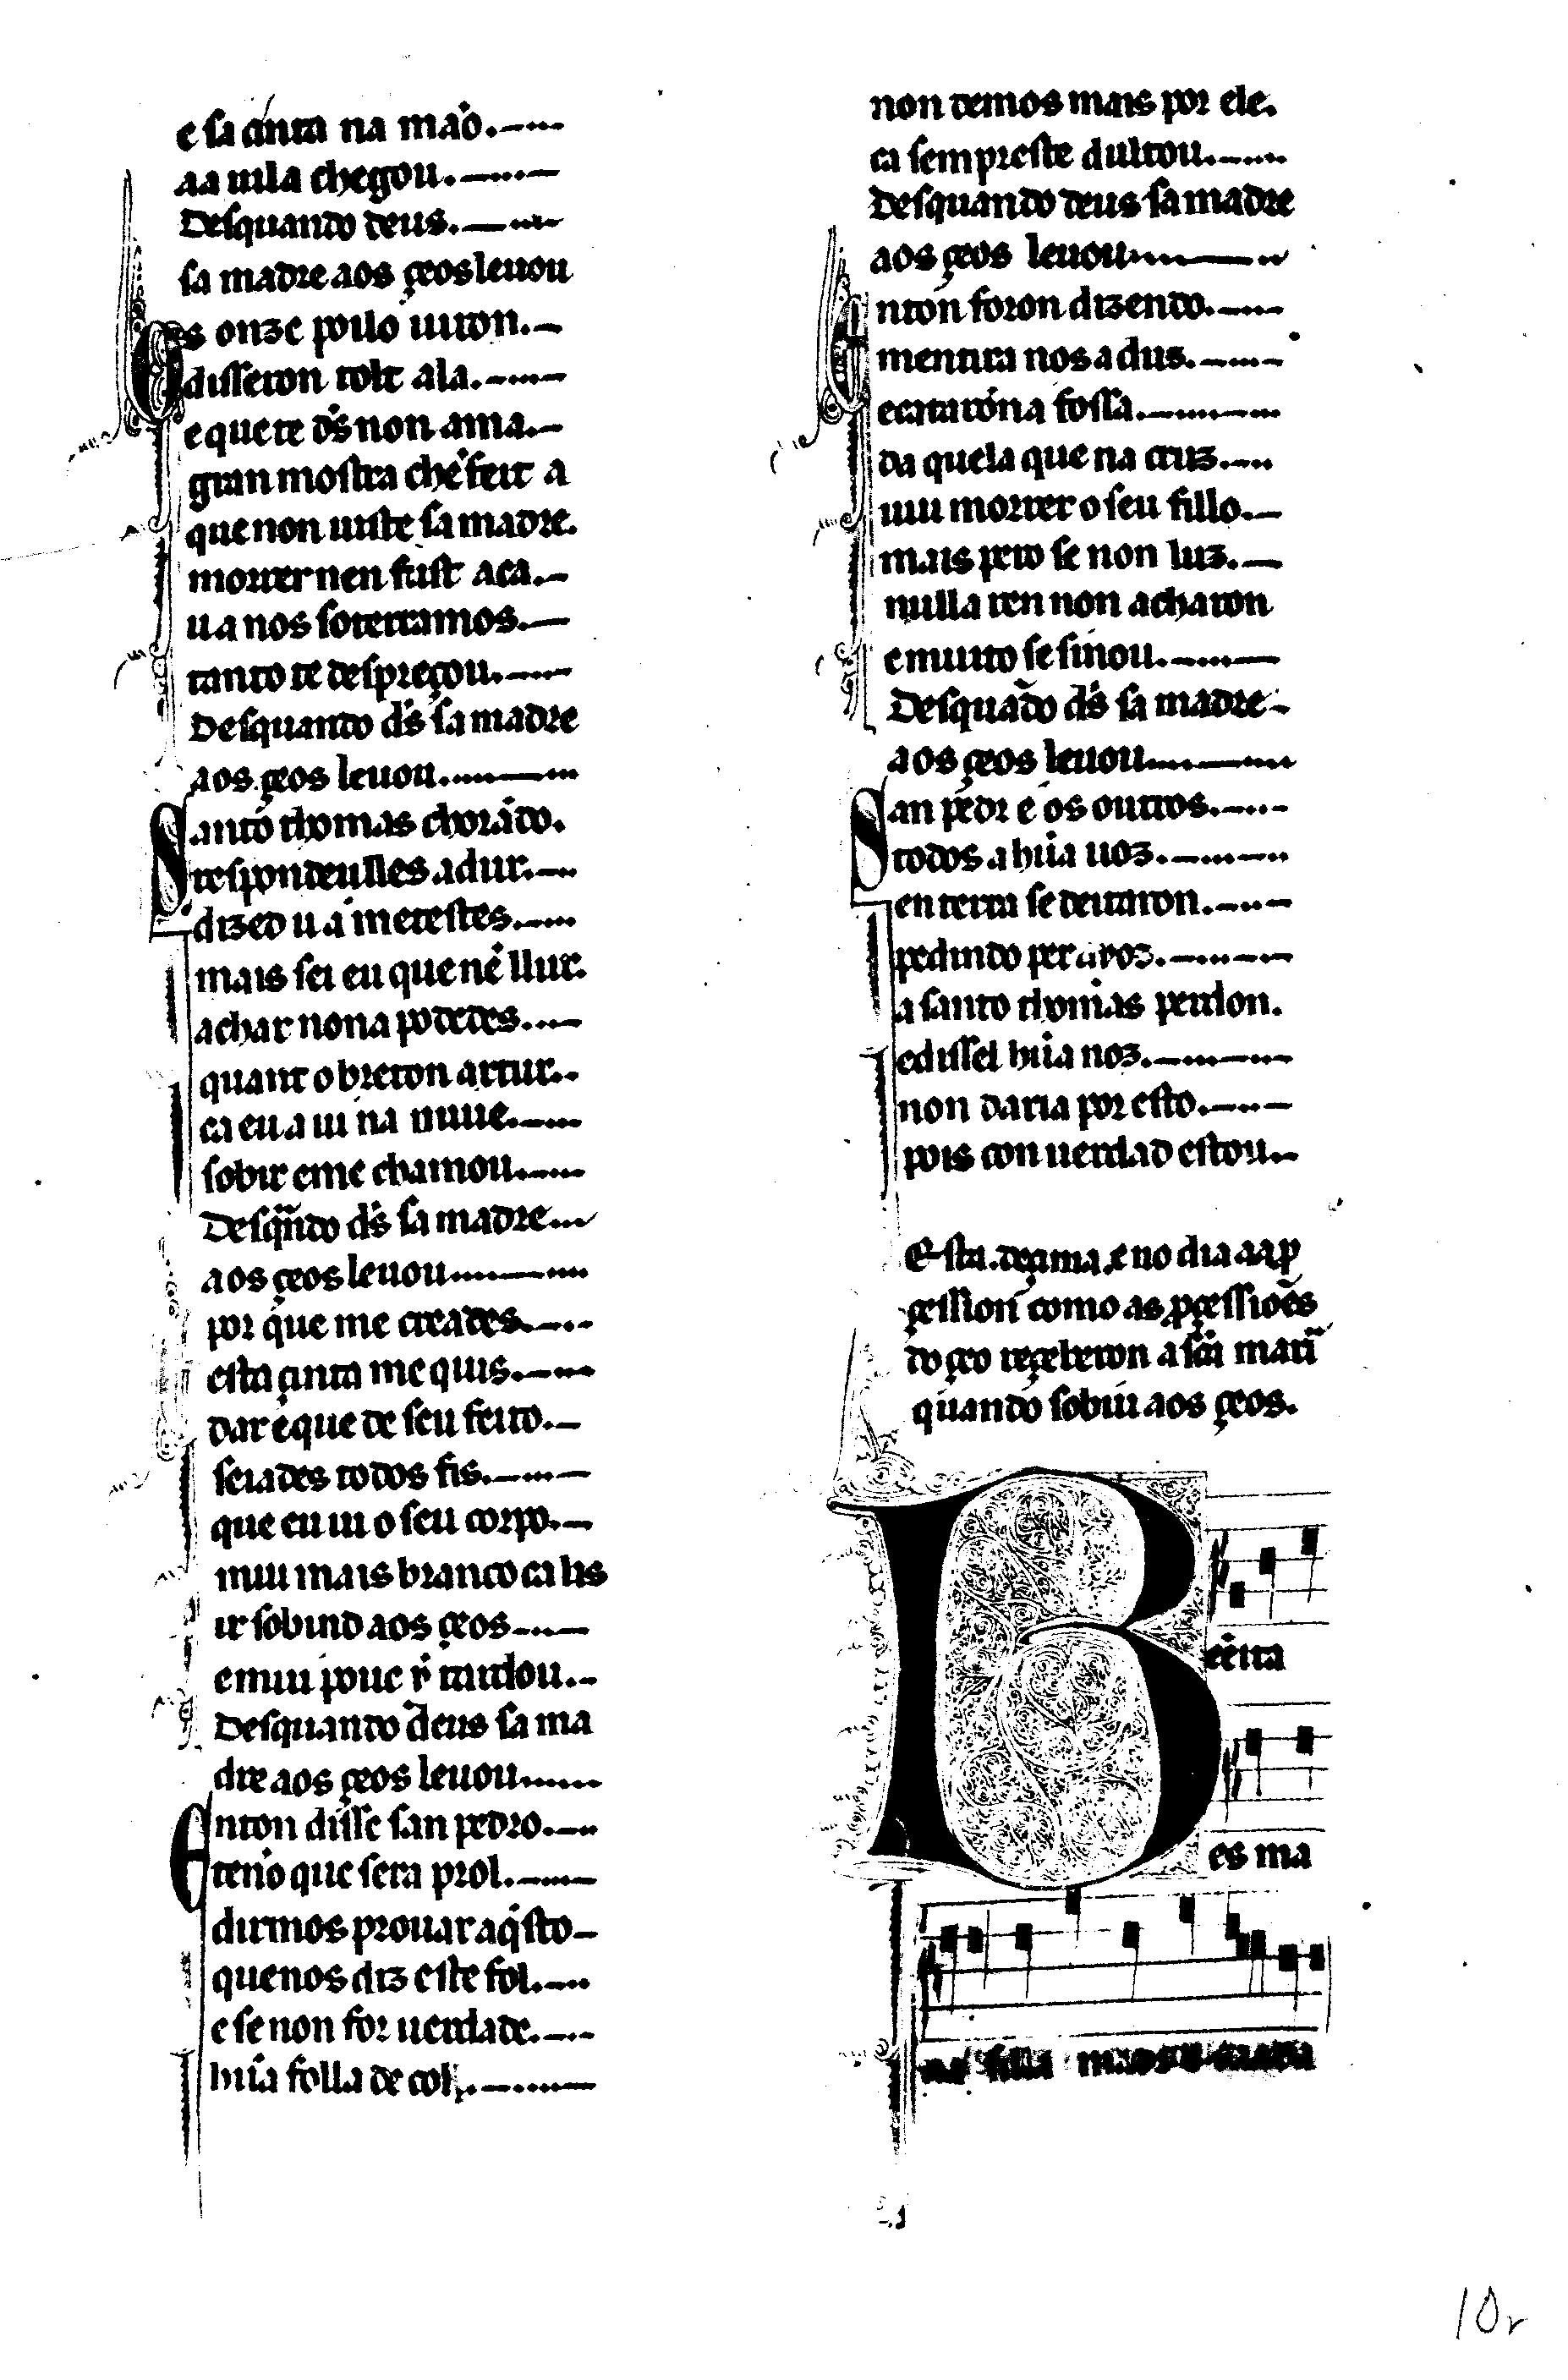 e sa cinta na mão.
aa uila chegou.
Desquando deus.
sa madre aos çeos leuou
Os onze poilo uiron.
disseron tolt ala.
e que te d's non ama.
gran mostra ch'é feit a
que non uiste sa madre.
morrer nen fust aca.
u a nos soterramos.
tanto te despreçou.
Desquando d's sa madre
aos çeos leuou.
Santo thomas chorãdo.
respondeulles adur.
dized u a metestes.
mais sei eu que nẽ llur.
achar nona podedes.
quant o breton artur.
ca eu a ui na nuue.
sobir e me chamou.
Desqñdo d's sa madre
aos çeos leuou
por que me creades.
esta çinta me quis.
dar e que de seu feito.
seiades todos fis.
que eu ui o seu corpo.
mui mais branco ca lis
ir sobind aos çeos
e mui pouc y tardou.
Desquando deus sa ma
dre aos çeos leuou
Enton disse san pedro.
tenno que sera prol.
dirmos prouar aq̇sto
que nos diz este fol.
e se non for uerdade.
hũa folla de col.
non demos mais por ele.
ca sempreste dultou.
Desquando deus sa madre
aos çeos leuou
Enton foron dizendo.
mentira nos adus.
e cataron a fossa.
da quela que na cruz.
uiu morrer o seu fillo.
mais pero se non luz.
nulla ren non acharon
e muito se sinou.
Desquãdo d's sa madre
aos çeos leuou
San pedr e os outros.
todos a hũa uoz.
en terra se deitaron.
pedindo per aroz.
a santo thomas perdon.
e dissel hũa noz.
non daria por esto.
pois con uerdad estou.
Esta .deçima. e no dia aa p̱
çission como as p̱çessiões
do çeo reçeberon a sc̃a mari̇̃
quando sobiu aos çeos.
Bẽeita
es ma
ria filla madr e criada
10r